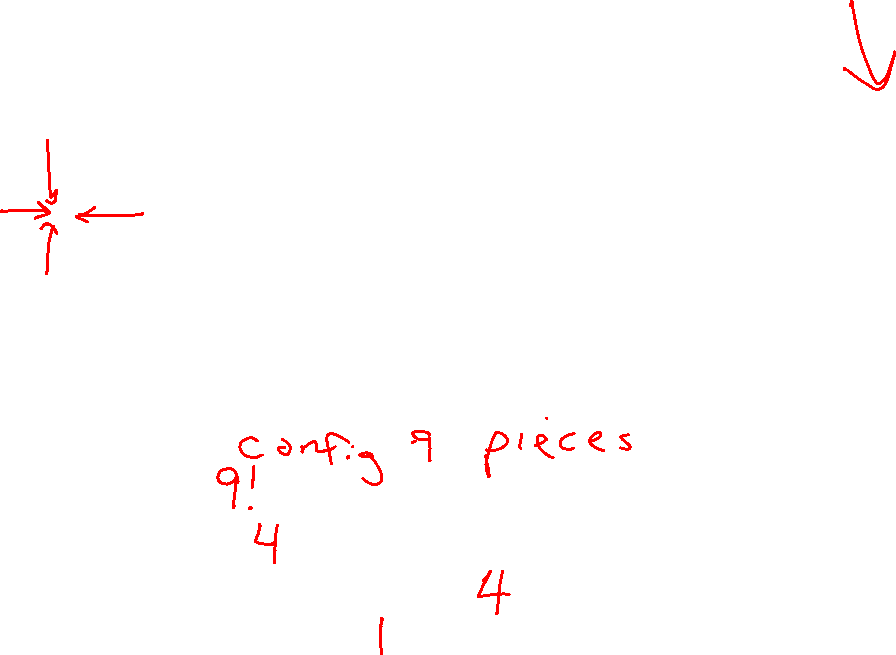 config 9 pieces
9!
4
4
1